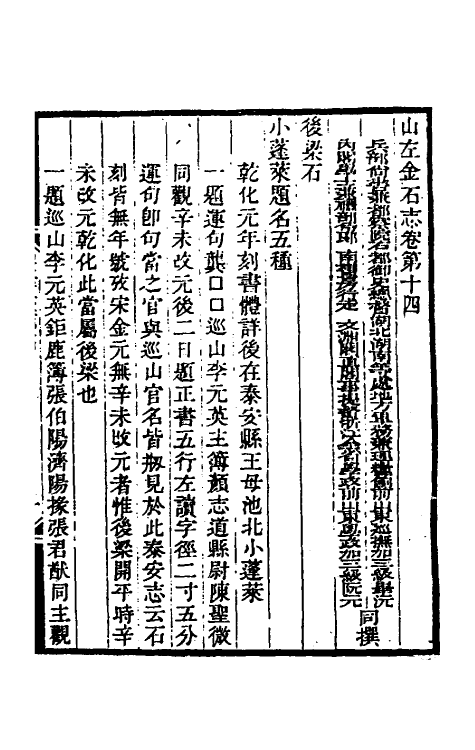 山左金石志卷第十四
兵部尚書兼都察院右都御史總督湖北湖南等處地方軍務兼理糧餉前山東巡撫加三級畢沅
內閣學士兼禮部侍郎 南書房行走 文淵閣直閣事提督浙江全省學政前山東學政加三級阮元
同撰
後梁石
小蓬萊題名五種
乾化元年刻書體詳後在泰安縣王母池北小蓬萊
一題運句龔口口巡山李元英主簿顏志道縣尉陳聖微
同觀辛未改元後二日題正書五行左讀字徑二寸五分
運句卽句當之官與巡山官名皆刱見於此泰安志云石
刻皆無年號攷宋金元無辛未改元者惟後梁開平時辛
未改元乾化此當屬後梁也
一題巡山李元英鉅鹿簿張伯陽濟陽掾張君猷同主觀